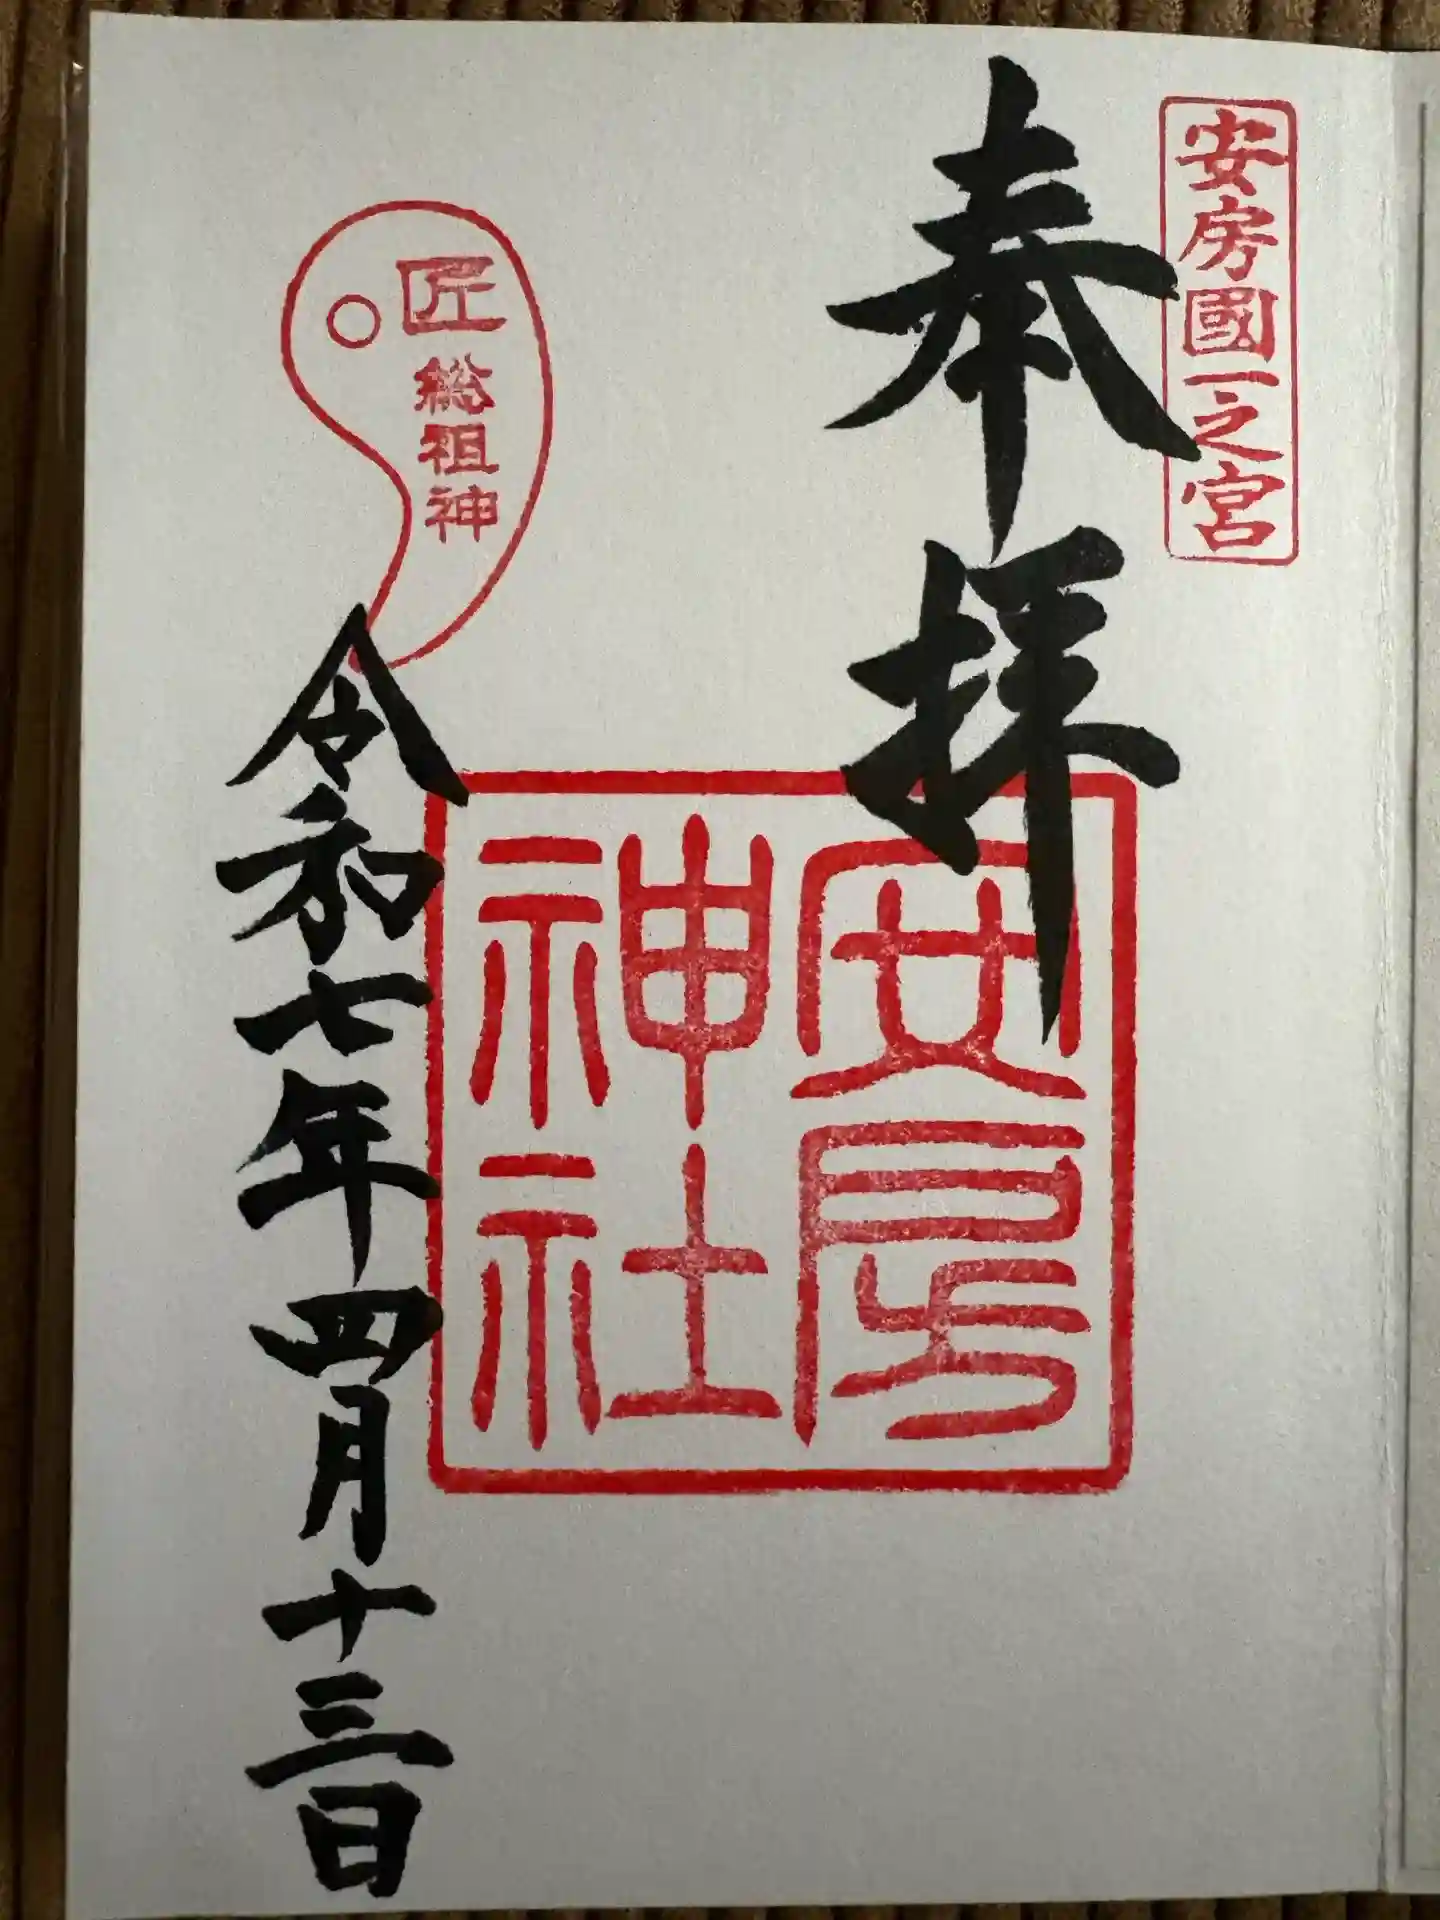 安房國一之宮
奉拝
安房
神社
匠総祖神
令和七年四月十三日